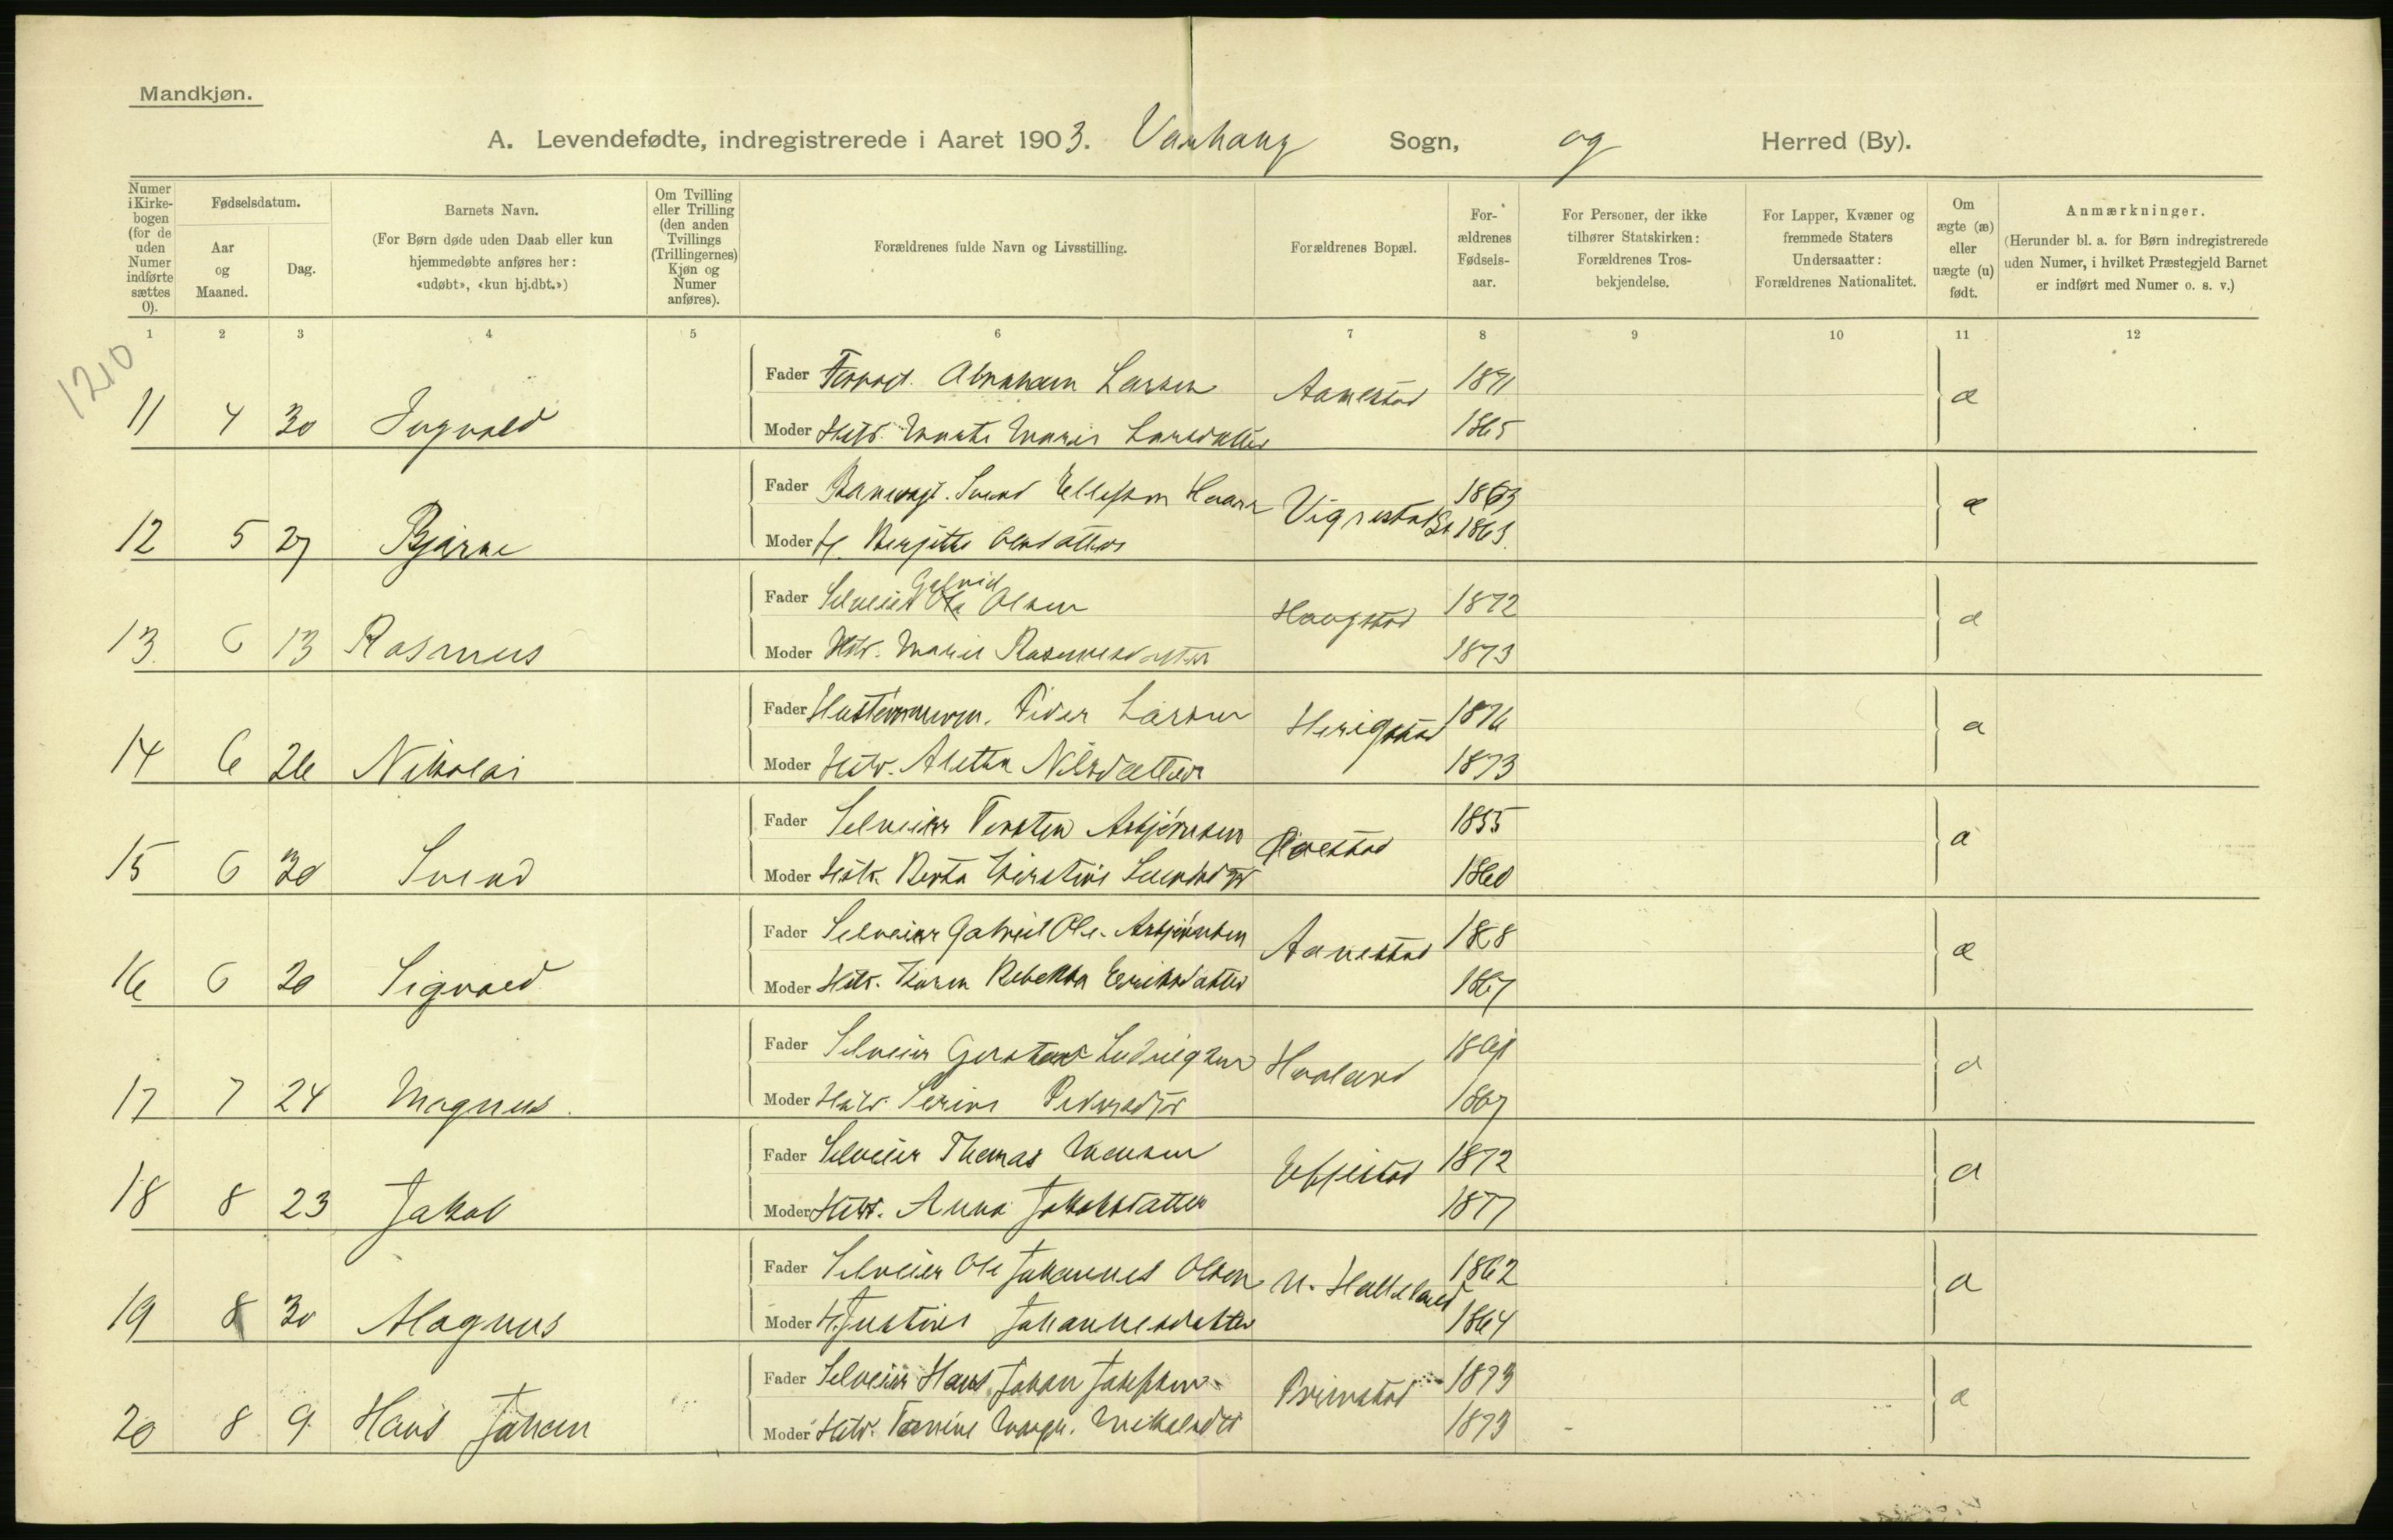 Mandkjøn.
A. Levendefødte, indregistrerede i Aaret 1903. Varhaug Sogn, og Herred (By).
Numer i Kirkebogen (for de uden Numer indførte sættes 0).
Fødselsdatum.
Aar og Maaned.
Dag.
Barnets Navn.
(For Børn døde uden Daab eller kun hjemmedøbte anføres her: «udøbt», «kun hj.dbt.»)
Om Tvilling eller Trilling (den anden Tvillings (Trillingernes) Kjøn og Numer anføres).
Forældrenes fulde Navn og Livsstilling.
Forældrenes Bopæl.
For-ældrenes Fødsels-aar.
For Personer, der ikke tilhører Statskirken: Forældrenes Tros-bekjendelse.
For Lapper, Kvæner og fremmede Staters Undersaatter: Forældrenes Nationalitet.
Om ægte (æ) eller uægte (u) født.
Anmærkninger.
(Herunder bl. a. for Børn indregistrerede uden Numer, i hvilket Præstegjeld Barnet er indført med Numer o. s. v.)
1 2 3 4 5 6 7 8 9 10 11 12
1210
Fader Abraham Larsen Aanestad 1871 æ
11 4 30 Ingvald
Moder Hstr. Marte Marie Larsdatter 1865
Fader Banevogt. Svend Ellefsen Haar Vigrestad St. 1863 æ
12 5 27 Bjarne
Moder H. Bergitte Olsdatter 1863
Fader Selveier Gabriel Olsen Haugstad 1872 æ
13 6 13 Rasmus
Moder Hstr. Marie Rasmusdatter 1873
Fader Peder Larsen Herigstad 1876 æ
14 6 26 Nikolai
Moder Hstr. Alethe Nilsdatter 1873
Fader Selveier Torsten Asbjørnsen 1855 æ
15 6 30 Svend
Moder Hstr. Berta Kirstine Svendsdtr 1860
Fader Selveier Gabriel Ole Asbjørnsen Aanestad 1868 æ
16 6 20 Sigvald
Moder Hstr. Karen Rebekka Eriksdatter 1867
Fader Selveier Ludvigsen Haaland 1861 æ
17 7 24 Magnus.
Moder Hstr. Serine Pedersdtr 1867
Fader Selveier Thomas Monsen 1872 æ
18 8 23 Jakob
Moder Hstr. Anna Jakobsdatter 1877
Fader Selveier Ole Johannes Olsen N. Hatteland 1862 æ
19 8 30 Magnus
Moder H. Justine Johannesdatter 1864
Fader Selveier Hans Johan Josefsen Brimstad 1873 æ
20 8 9. Hans Johan
Moder Hstr. Tomine Margr. 1873